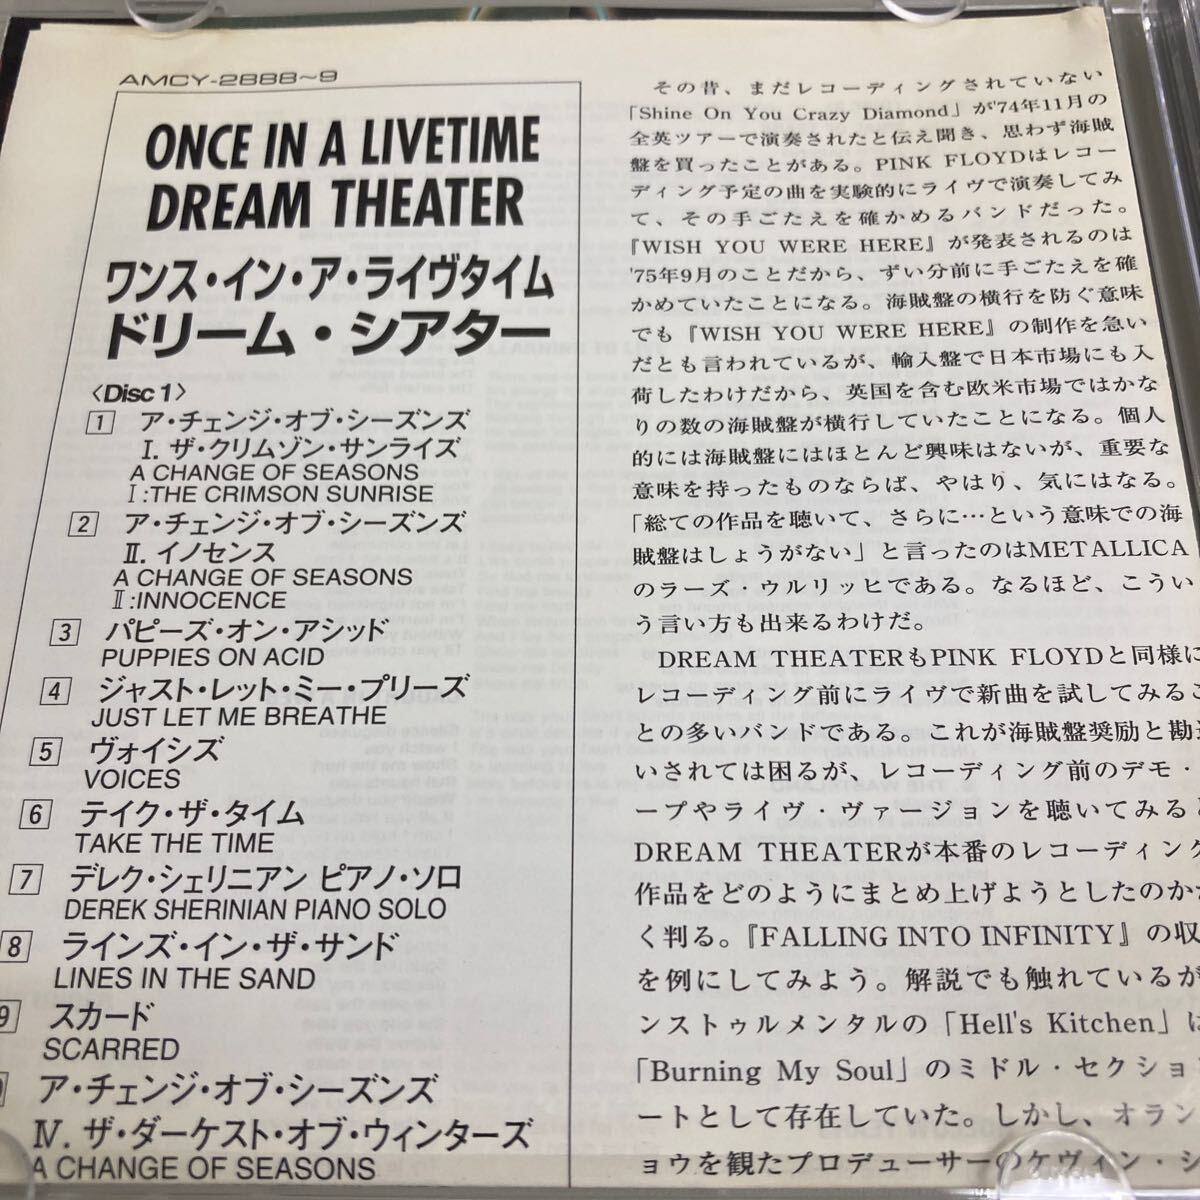 AMCY-2888~9
ONCE IN A LIVETIME
DREAM THEATER
ワンス・イン・ア・ライヴタイム
ドリーム・シアター
〈Disc 1〉
1 ア・チェンジ・オブ・シーズンズ
Ⅰ. ザ・クリムゾン・サンライズ
A CHANGE OF SEASONS
Ⅰ:THE CRIMSON SUNRISE
2 ア・チェンジ・オブ・シーズンズ
Ⅱ. イノセンス
A CHANGE OF SEASONS
Ⅱ:INNOCENCE
3 パピーズ・オン・アシッド
PUPPIES ON ACID
4 ジャスト・レット・ミー・ブリーズ
JUST LET ME BREATHE
5 ヴォイシズ
VOICES
6 テイク・ザ・タイム
TAKE THE TIME
7 デレク・シェリニアン ピアノ・ソロ
DEREK SHERINIAN PIANO SOLO
8 ラインズ・イン・ザ・サンド
LINES IN THE SAND
9 スカード
SCARRED
ア・チェンジ・オブ・シーズンズ
Ⅳ. ザ・ダーケスト・オブ・ウィンターズ
A CHANGE OF SEASONS
その昔、まだレコーディングされていない
「Shine On You Crazy Diamond」が'74年11月の
全英ツアーで演奏されたと伝え聞き、思わず海賊
盤を買ったことがある。PINK FLOYDはレコー
ディング予定の曲を実験的にライヴで演奏してみ
て、その手ごたえを確かめるバンドだった。
『WISH YOU WERE HERE』が発表されるのは
'75年9月のことだから、ずい分前に手ごたえを確
かめていたことになる。海賊盤の横行を防ぐ意味
でも『WISH YOU WERE HERE』の制作を急い
だとも言われているが、輸入盤で日本市場にも入
荷したわけだから、英国を含む欧米市場ではかな
りの数の海賊盤が横行していたことになる。個人
的には海賊盤にはほとんど興味はないが、重要な
意味を持ったものならば、やはり、気にはなる。
「総ての作品を聴いて、さらに…という意味での海
賊盤はしょうがない」と言ったのはMETALLICA
のラーズ・ウルリッヒである。なるほど、こうい
う言い方も出来るわけだ。
DREAM THEATERもPINK FLOYDと同様に
レコーディング前にライヴで新曲を試してみるこ
との多いバンドである。これが海賊盤奨励と勘
いされては困るが、レコーディング前のデモ・
ープやライヴ・ヴァージョンを聴いてみると
DREAM THEATERが本番のレコーディング
作品をどのようにまとめ上げようとしたのか
く判る。『FALLING INTO INFINITY』の収
を例にしてみよう。解説でも触れているが
ンストゥルメンタルの「Hell's Kitchen」は
「Burning My Soul」のミドル・セクショ
ートとして存在していた。しかし、オラン
ョウを観たプロデューサーのケヴィン・シ